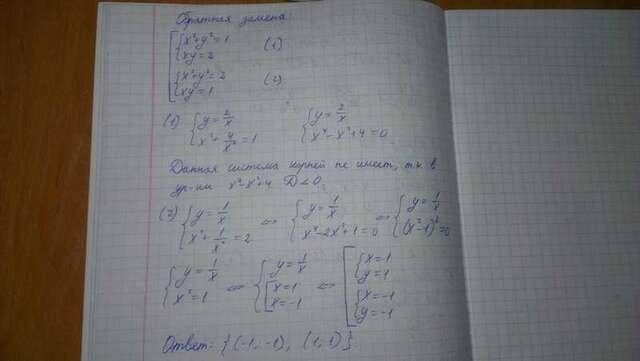 Обратная замена
[ { x²+y²=1
xy=2 (1)
{ x²+y²=2
xy=1 (2)
(1) { y=2/x
x²+4/x²=1 { y=2/x
x⁴-x²+4=0
Данная система корней не имеет, т.к в
ур-нии x⁴-x²+4 D<0
(2) { y=1/x
x²+1/x²=2 ⇔ { y=1/x
x⁴-2x²+1=0 ⇔ { y=1/x
(x²-1)²=0
{ y=1/x
x²=1 ⇔ { y=1/x
[ x=1
x=-1 ⇔ [ { x=1
y=1
{ x=-1
y=-1
Ответ: {(-1,-1), (1,1)}